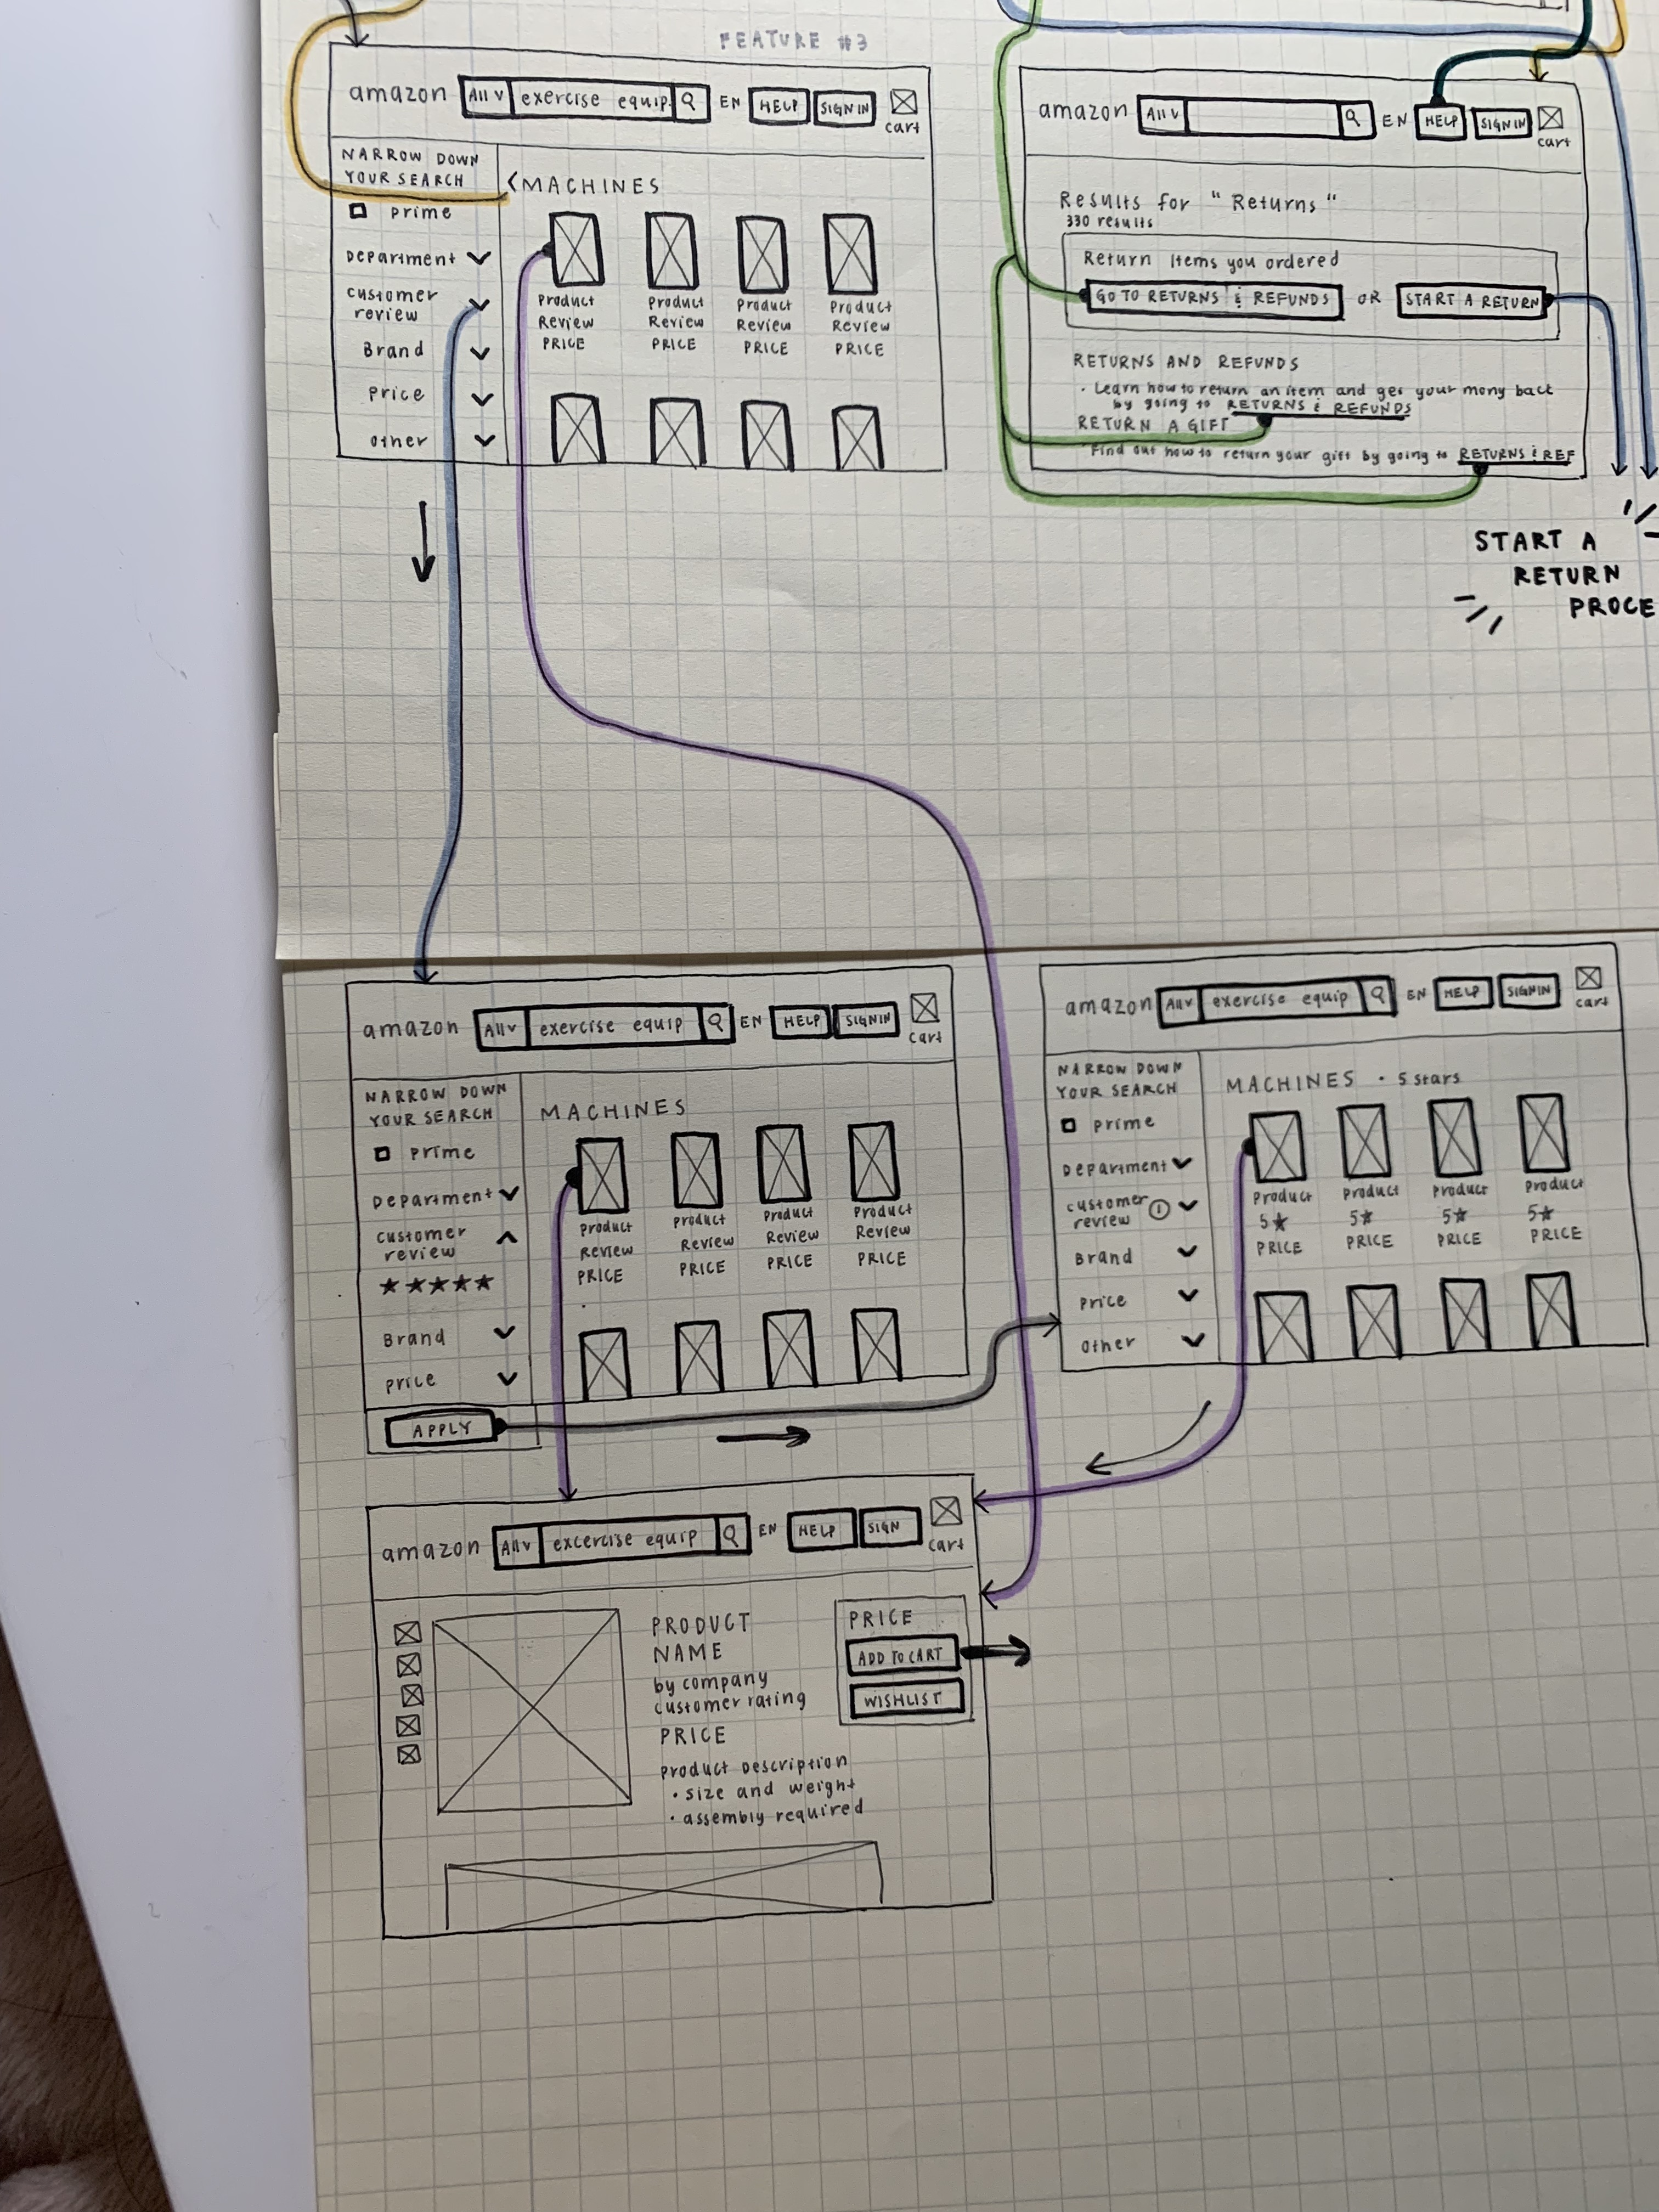 FEATURE #3
amazon All v exercise equip. EN HELP SIGN IN cart
NARROW DOWN
YOUR SEARCH
prime
Department
customer
review
Brand
price
other
< MACHINES
Product Product Product Product
Review Review Review Review
PRICE PRICE PRICE PRICE
amazon All v EN HELP SIGN IN cart
Results for "Returns"
330 results
Return Items you ordered
GO TO RETURNS & REFUNDS OR START A RETURN
RETURNS AND REFUNDS
• Learn how to return an item and get your mony back
by going to RETURNS & REFUNDS
RETURN A GIFT
• Find out how to return your gift by going to RETURNS & REF
START A
RETURN
PROCE
amazon All v exercise equip EN HELP SIGN IN cart
NARROW DOWN
YOUR SEARCH
prime
Department
customer
review
★★★★★
Brand
price
APPLY
MACHINES
Product Product Product Product
Review Review Review Review
PRICE PRICE PRICE PRICE
amazon All v exercise equip EN HELP SIGN IN cart
NARROW DOWN
YOUR SEARCH
prime
Department
customer
review 1
Brand
price
other
MACHINES • 5 stars
Product Product Product Product
5★ 5★ 5★ 5★
PRICE PRICE PRICE PRICE
amazon All v excercise equip EN HELP SIGN cart
PRODUCT
NAME
by company
customer rating
PRICE
product description
• size and weight
• assembly required
PRICE
ADD TO CART
WISHLIST